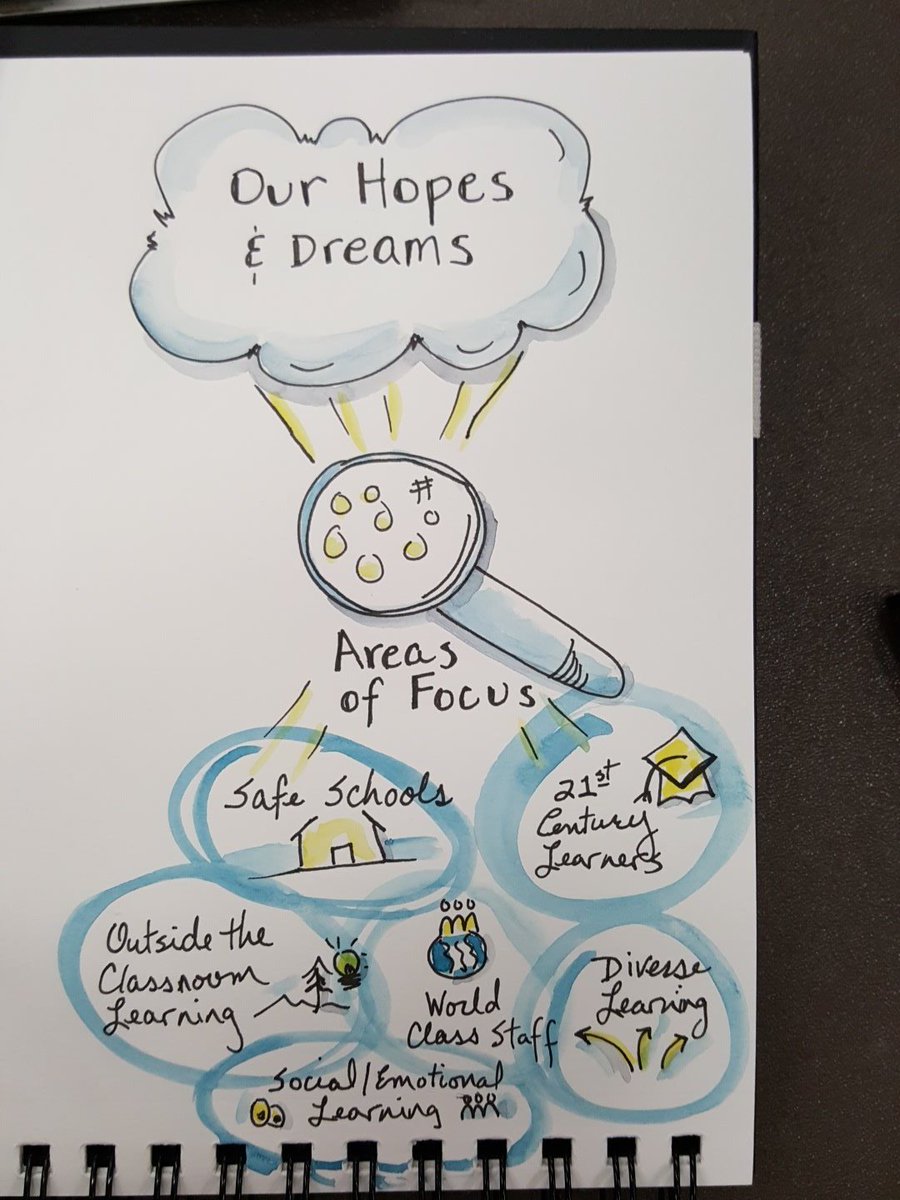 Our Hopes
& Dreams
#
Areas
of Focus
Safe Schools
21st
Century
Learners
Outside the
Classroom
Learning
World
Class Staff
Diverse
Learning
Social/Emotional
Learning